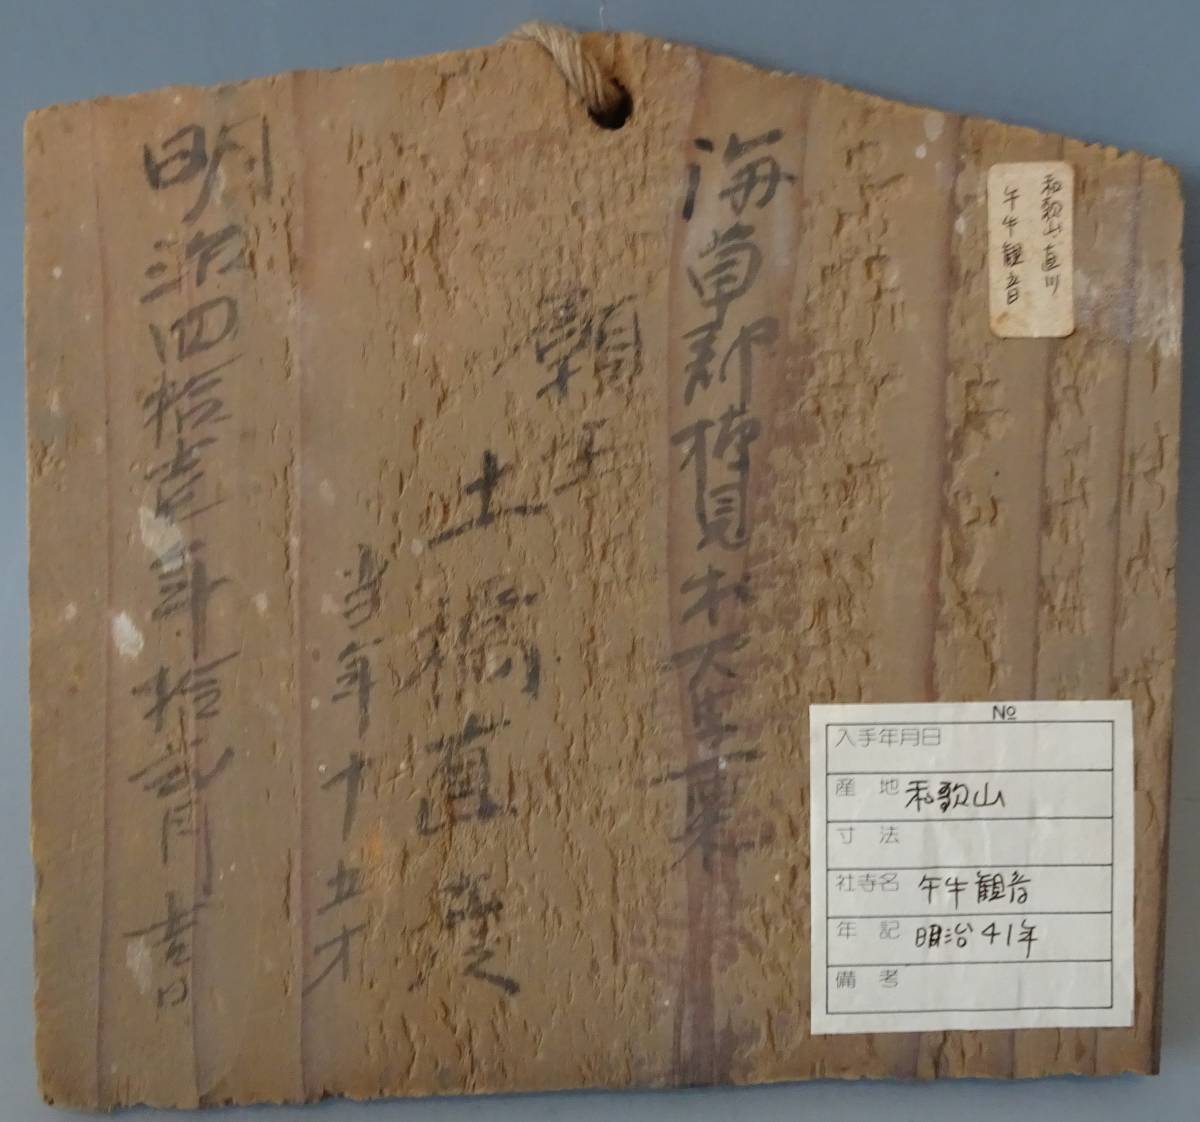 和歌山直川
午牛観音
海草郡楠見村大字平栗
願主
土橋直楚
当年十五才
明治四拾壱年拾弐月吉日
No
入手年月日
産 地 和歌山
寸 法
社寺名 午牛観音
年 記 明治41年
備 考